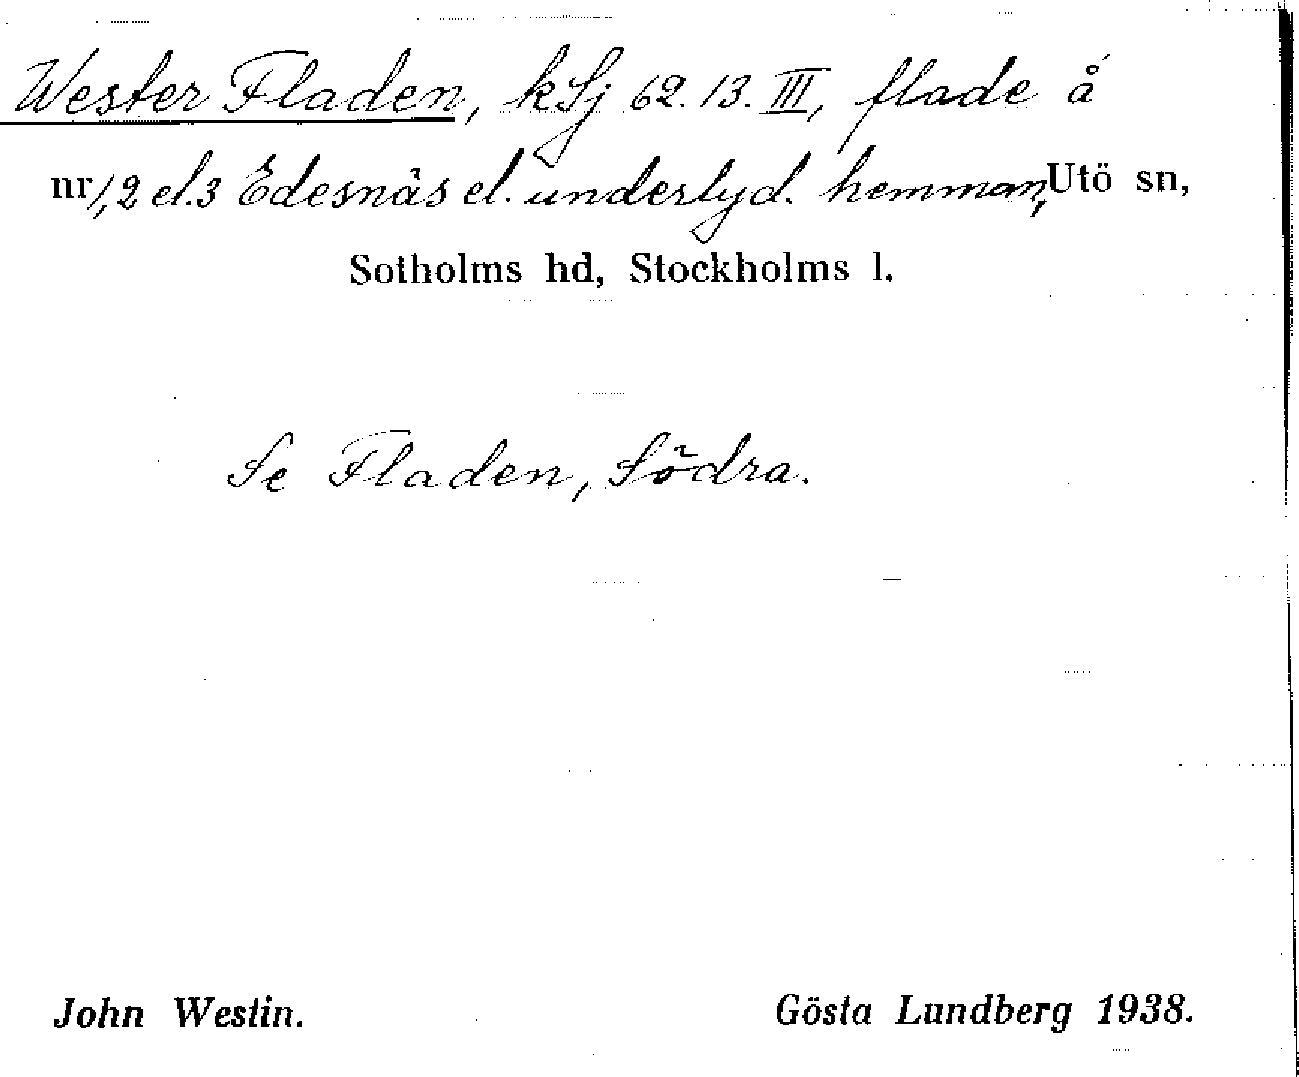 Wester Fladen, kSj 62.13.III, flade å
nr 1,2 el.3 Edesnäs el. underlyd. hemman, Utö sn,
Sotholms hd, Stockholms l.
Se Fladen, Södra.
John Westin. Gösta Lundberg 1938.